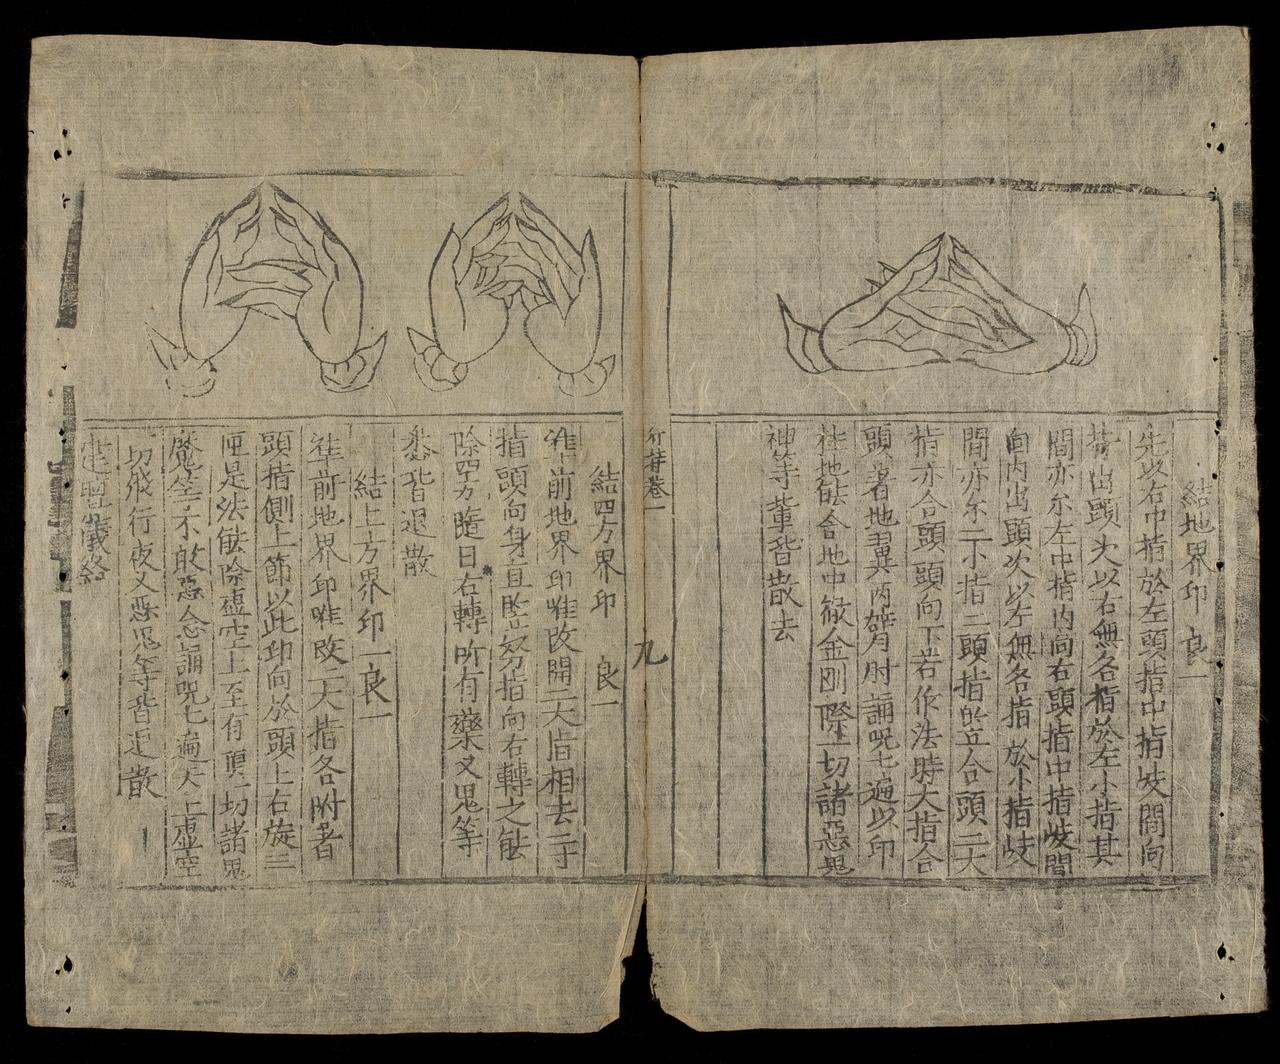 結地界印 良一
先以右中指於左頭指中指岐間向
背出頭次以右無名指於左小指其
間亦尒左中指內向右頭指中指岐間
向內出頭次以左無名指於小指岐
間亦尒二小指二頭指的立合頭二大
指亦合頭頭向下若作法時大指合
頭著地翼兩臂肘誦呪七遍以印
拄地能令地中徹金剛際一切諸惡鬼
神等輩皆散去
卷一
九
結四方界印 良一
准前地界印唯改開二大指相去二寸
指頭向身直竪努指向右轉之能
除四方隨日右轉所有藥叉鬼等
悉皆退散
結上方界印 良一
准前地界印唯改二大指各附著
頭指側上節以此印向於頭上右旋三
匝是法能除虛空上至有頂一切諸鬼
魔等不敢惡念誦呪七遍天上虛空
切飛行夜叉惡鬼等皆退散
建曼儀終